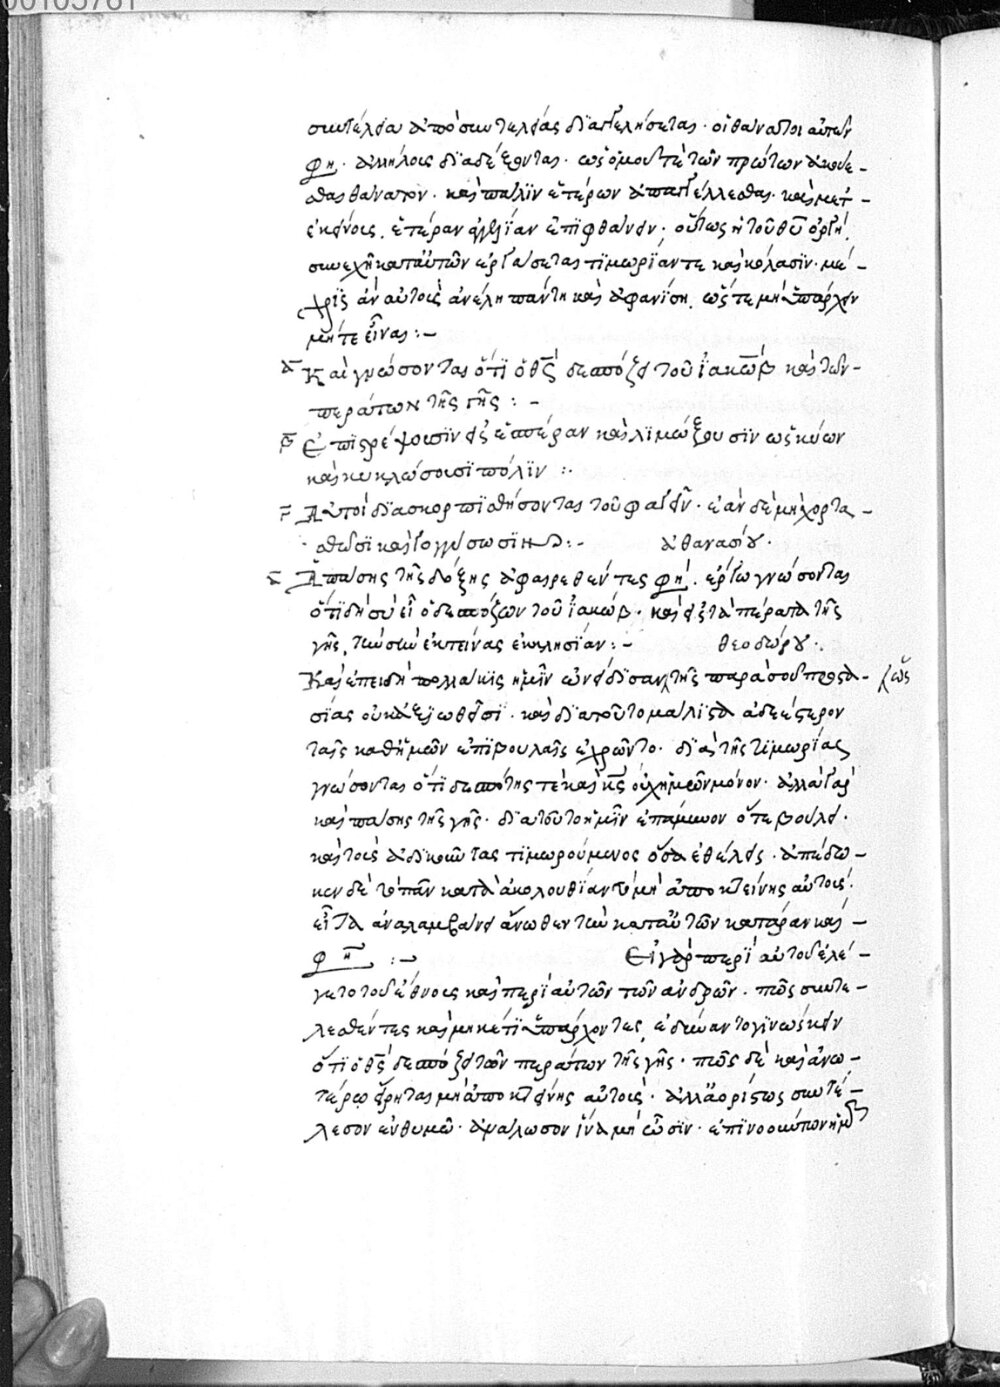 00105761
συντέλεια ἀπὸ συντελείας διαγγελήσεται· οἱ θάνατοι αὐτῶν
φη· ἀλλήλοις διαδέξονται· ὡς ὁμοῦ τὲ τῶν πρώτων ἀκούε-
σθαι θάνατον· καὶ πάλϊν ἑτέρων ἀπαγγέλλεσθαι· καὶ μετ'
ἐκείνοις, ἑτέραν ἀγγελίαν ἐπϊφθάνειν· οὕτως ἡ τοῦ θυ ὀργὴ,
συνεχῆ κατ' αὐτῶν ἐργάσεται τϊμωρίαν τε καὶ κόλασϊν· μέ-
χρϊς ἂν αὐτοὺς ἀνέλη πάντη καὶ ἀφανίση, ὥστε μὴ ὑπάρχειν
μήτε εἶναι:-
α Καὶ γνώσονται ὅτϊ ὁ θς δεσπόζει τοῦ ἰακὼβ καὶ τῶν-
περάτων τῆς γῆς:-
β Ἐπϊστρέψουσϊν εἰς ἑσπέραν καὶ λϊμώξουσϊν ὡς κύων
καὶ κυκλώσουσϊ πόλϊν:·
γ Αὐτοὶ διασκορπϊσθήσονται τοῦ φαγεῖν· ἐὰν δὲ μὴ χορτα-
σθῶσϊ καὶ γογγύσωσϊν:- ἀθανασίου·
α Ἁπάσης τῆς δόξης ἀφαιρεθέντες φη, ἔργω γνώσονται
ὅτϊ δὴ σὺ εἶ ὁ δεσπόζων τοῦ ἰακώβ· καὶ εἰς τὰ πέρατα τῆς
γῆς, τὴν σὴν ἐκτείνας ἐκκλησίαν:- θεοδώρου·.
Καὶ ἐπειδὴ πολλάκϊς ἡμῖν ὠνείδϊσαν τῆς παρὰ σοῦ προστα-
σίας οὐκ ἀξϊωθεῖσϊ· καὶ διὰ τοῦτο μάλϊστα ἀδεέστερον
ταῖς καθ' ἡμῶν ἐπϊβουλαῖς ἐχρῶντο· διὰ τῆς τϊμωρίας
γνώσονται ὅτϊ δεσπότης τὲ καὶ κς οὐχ ἡμῶν μόνον· ἀλλὰ γὰρ
καὶ πάσης τῆς γῆς· διὰ τοῦτο ἡμῖν ἐπάμυνον ὅτε βούλει·
καὶ τοὺς ἀδικοῦντας τϊμωρούμενος ὅσα ἐθέλεις· ἀπέδω-
κεν δὲ τὸ πᾶν κατὰ ἀκολουθίαν τὸ μὴ ἀποκτείνης αὐτούς·
εἶτα ἀναλαμβάνει ἄνωθεν τὴν κατ' αὐτῶν κατάραν καί-
φη:- Εἰ γὰρ περὶ αὐτοῦ ἐλέ-
γετο τοῦ ἔθνους καὶ περὶ αὐτῶν τῶν ἀνδρῶν· πῶς συντε-
λεσθέντες καὶ μηκέτϊ ὑπάρχοντες, ἐδύναντο γϊνώσκειν
ὅτϊ ὁ θς δεσπόζει τῶν περάτων τῆς γῆς· πῶς δὲ καὶ ἀνω-
τέρω εἴρηται μὴ ἀποκτείνης αὐτούς· ἀλλ' ἀορίστως συντέ-
λεσον ἐν θυμῶ· ἀνάλωσον ἵνα μὴ ὦσϊν·